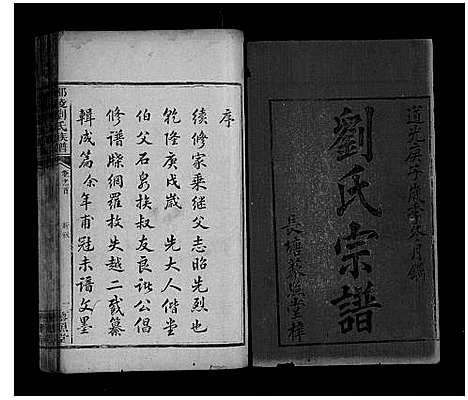 道光庚子歲
劉氏宗譜
長塘藜照堂梓
序
續修家乗継父志昭先烈也
乾隆庚戌歲 先大人偕堂
伯父石泉族叔友良訟公倡
修譜牒網羅放失越二載纂
輯成篇余年甫冠未諳文墨
劉氏族譜
卷之首